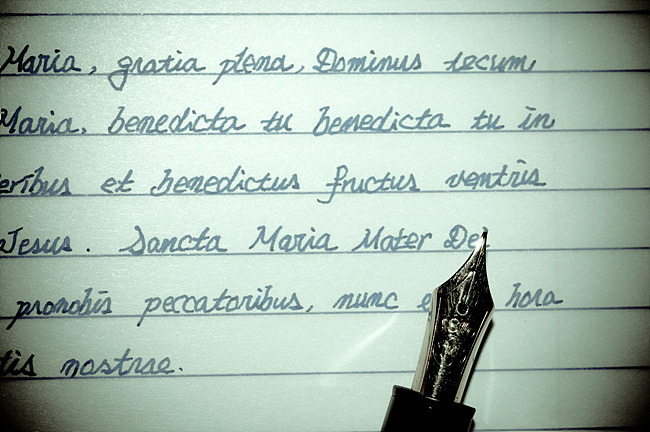 Maria, gratia plena, Dominus tecum
Maria, benedicta tu benedicta tu in
eribus et benedictus fructus ventris
Jesus. Sancta Maria Mater De
pronobis peccatoribus, nunc e hora
tis nostrae.